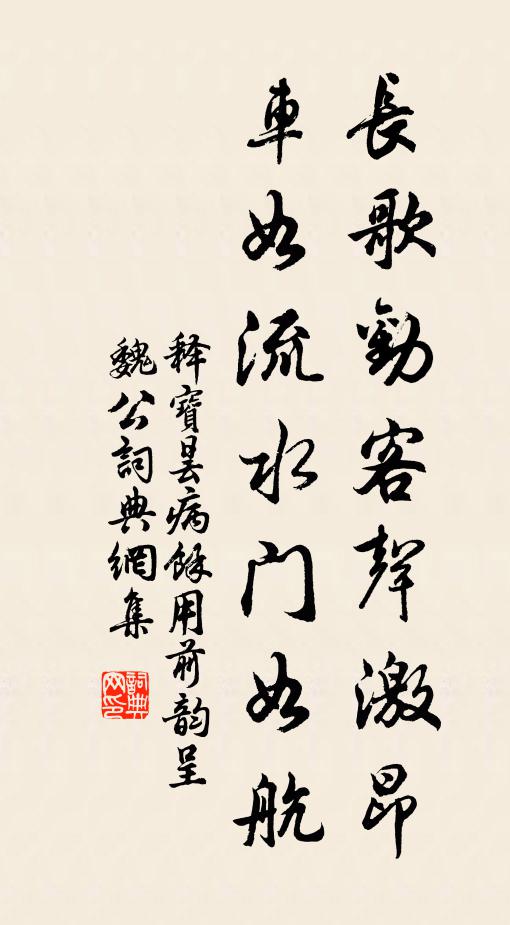 長歌勸客聲激昂
車如流水門如航
释寶曇病餘用前韵呈
魏公詞典網集
詞典网印